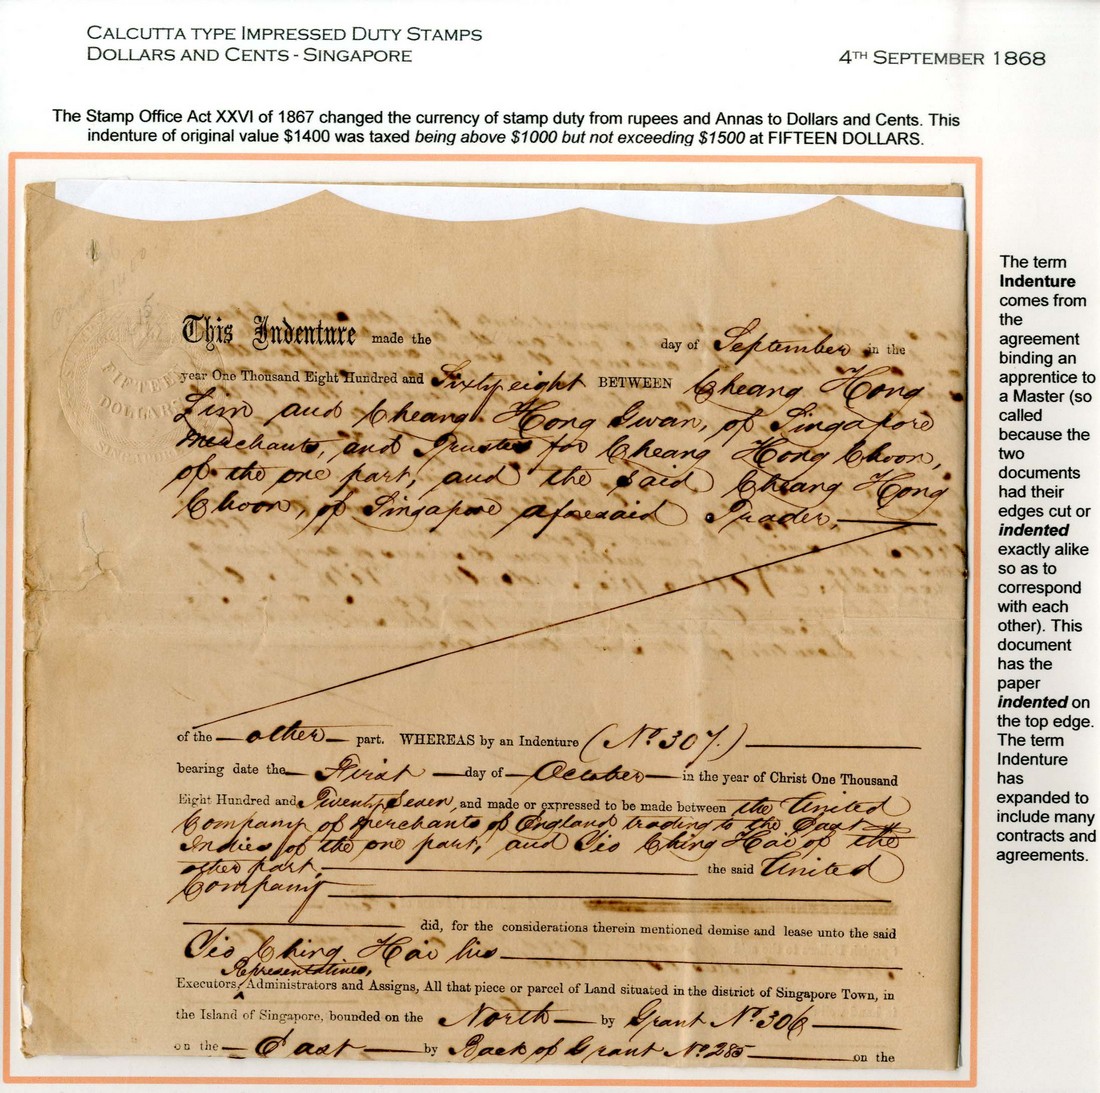 CALCUTTA TYPE IMPRESSED DUTY STAMPS
DOLLARS AND CENTS - SINGAPORE
4TH SEPTEMBER 1868
The Stamp Office Act XXVI of 1867 changed the currency of stamp duty from rupees and Annas to Dollars and Cents. This
indenture of original value $1400 was taxed being above $1000 but not exceeding $1500 at FIFTEEN DOLLARS.
FIFTEEN
DOLLARS
This Indenture made the day of September in the
year One Thousand Eight Hundred and Sixty eight BETWEEN Cheang Hong
Lim and Cheang Hong Gwan, of Singapore
Merchants, and Trustees for Cheang Hong Choon,
of the one part, and the said Cheang Hong
Choon, of Singapore aforesaid Trader,
of the other part. WHEREAS by an Indenture (No. 307.)
bearing date the First day of October in the year of Christ One Thousand
Eight Hundred and Twenty Seven, and made or expressed to be made between the United
Company of Merchants of England trading to the East
Indies of the one part, and Yeo Ching Hai of the
other part, the said United
Company
did, for the considerations therein mentioned demise and lease unto the said
Yeo Ching Hai his
Representatives,
Executors, Administrators and Assigns, All that piece or parcel of Land situated in the district of Singapore Town, in
the Island of Singapore, bounded on the North by Grant No. 306
on the East by Back of Grant No. 285 on the
The term
Indenture
comes from
the
agreement
binding an
apprentice to
a Master (so
called
because the
two
documents
had their
edges cut or
indented
exactly alike
so as to
correspond
with each
other). This
document
has the
paper
indented on
the top edge.
The term
Indenture
has
expanded to
include many
contracts and
agreements.